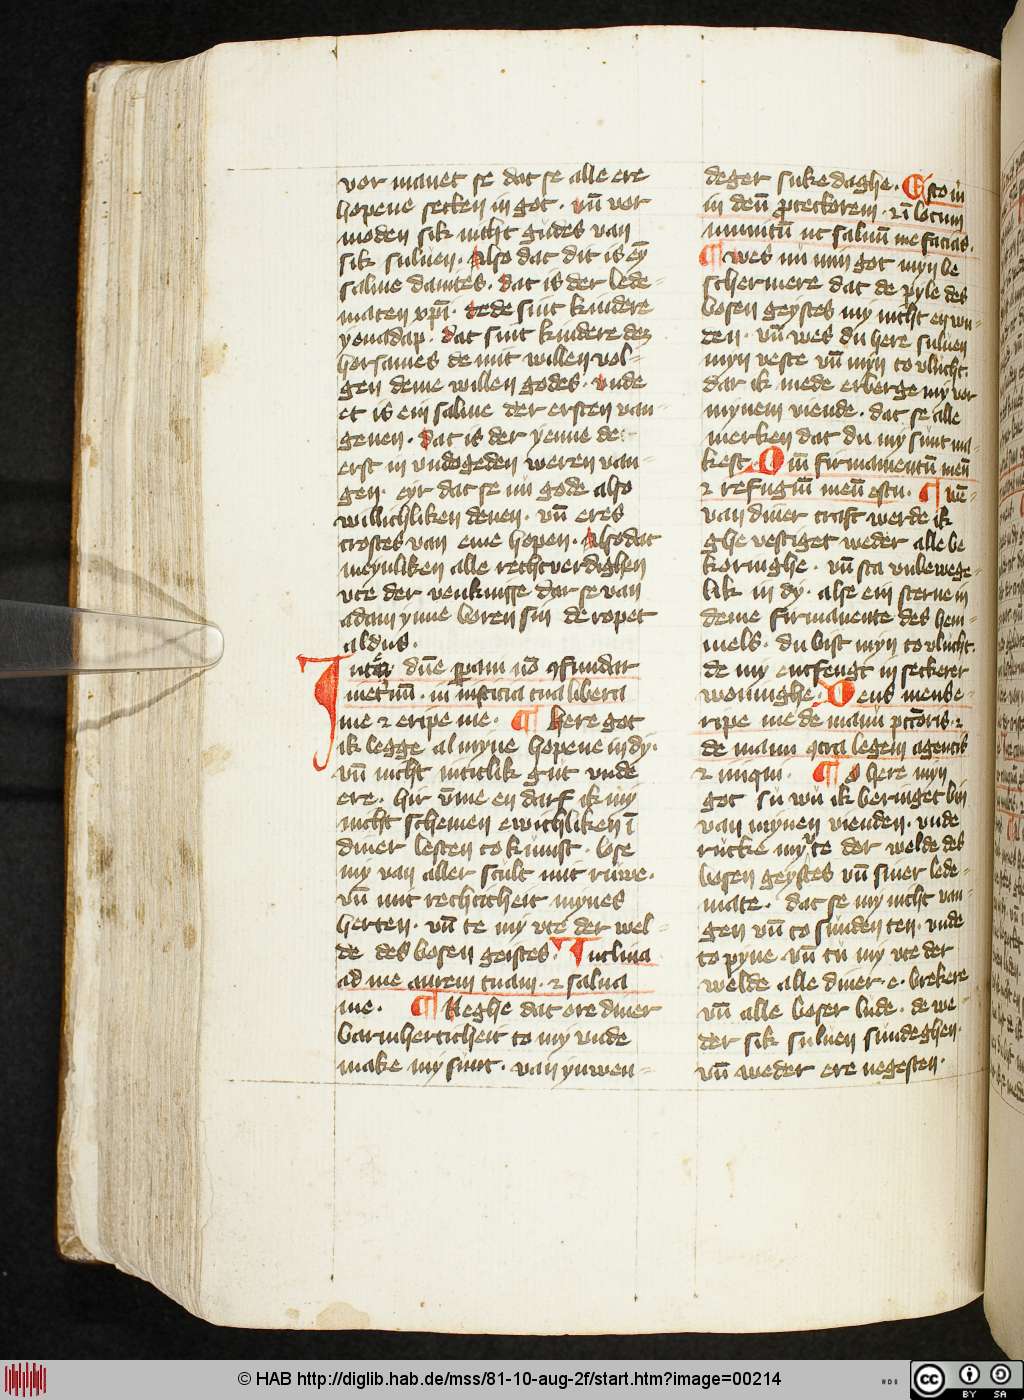 vor manet se dat se alle ere
hopene setten in got · vn̄ vor
moden sik nicht gudes van
sik suluen · Also dat dit is ey̅
salme dauites · dat is der lede=
maten xp̄i · dede sint kindere
yonadap · dat sint kindere des
horsames de mit willen vol=
gen deme willen godes · vnde
et is ein salme der ersten van=
genen · dat is der yenne de
erst in vndogeden weren van=
gen · eyr dat se nu gode also
willichliken denen · vn̄ eres
trostes van eme hopen · Also dat
meynliken alle rechtverdighen
vte der venknisse dar se van
adam ynne boren sin de ropet
aldus ·
In te dn̄e speraui nō ꝯfundar
in et̄nū · in iusticia tua libera
me ⁊ eripe me · ¶ Here got
ik legge al myne hopene in dy ·
vn̄ nicht in titlik gut vnde
ere · hir vm̄e en darf ik my
nicht schemen ewichliken ī
diner lesten to kumst · lose
my van aller scult mit ruwe ·
vn̄ mit rechticheit mynes
herten · vn̄ te my vte der wel=
de des bosen geistes · Inclina
ad me aurem tuam · ⁊ salua
me · ¶ Neghe dat ore diner
barmherticheit to my vnde
make my sunt · van ynwen=
deger suke daghe · Esto m̄
in deū ꝓtectorem · ⁊ ī locum
munitū ut saluū me facias ·
¶ wes nu min got myn be
schermere dat de pyle des
bosen geystes my nicht en wn=
den · vn̄ wes du here suluen
myn veste vn̄ myn to vlucht ·
dar ik mede erberge my vor
mynem viende · dat se alle
merken dat du my sunt ma=
kest · Qm̄ firmamentū meū
⁊ refugiū meū es tu · ¶ we̅
van diner craft werde ik
ghe vestiget weder alle be
koringhe · vn̄ sta vnbewege=
lik in dy · alse ein sterne in
deme firmamente des hem=
mels · du bist myn to vlucht ·
de my entfengt in seckerer
woninghe · Deus meus e=
ripe me de manu pctōris · ⁊
de manu ꝯtra legem agentis
⁊ iniqui · ¶ O here myn
got su wu ik beringet bin
van mynen vienden · vnde
rucke my vte der welde des
bosen geystes vn̄ siner lede=
mate · dat se my nicht van=
gen vn̄ to sunden ten · vnde
to pyne · vn̄ tu my vte der
welde alle diner · e · brekere
vn̄ alle boser lude · de we=
der sik suluen sundeghen ·
vn̄ weder ere negesten ·
© HAB http://diglib.hab.de/mss/81-10-aug-2f/start.htm?image=00214
CC BY SA